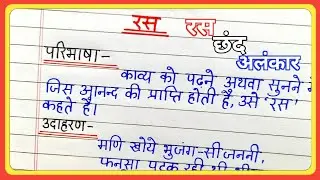 रस रस
छंद
अलंकार
परिभाषा-
काव्य को पढ़ने अथवा सुनने
जिस आनन्द की प्राप्ति होती है, उसे 'रस'
कहते है।
उदाहरण-
मणि खोये भुजंग-सी जननी,
फन सा पटक रही थी